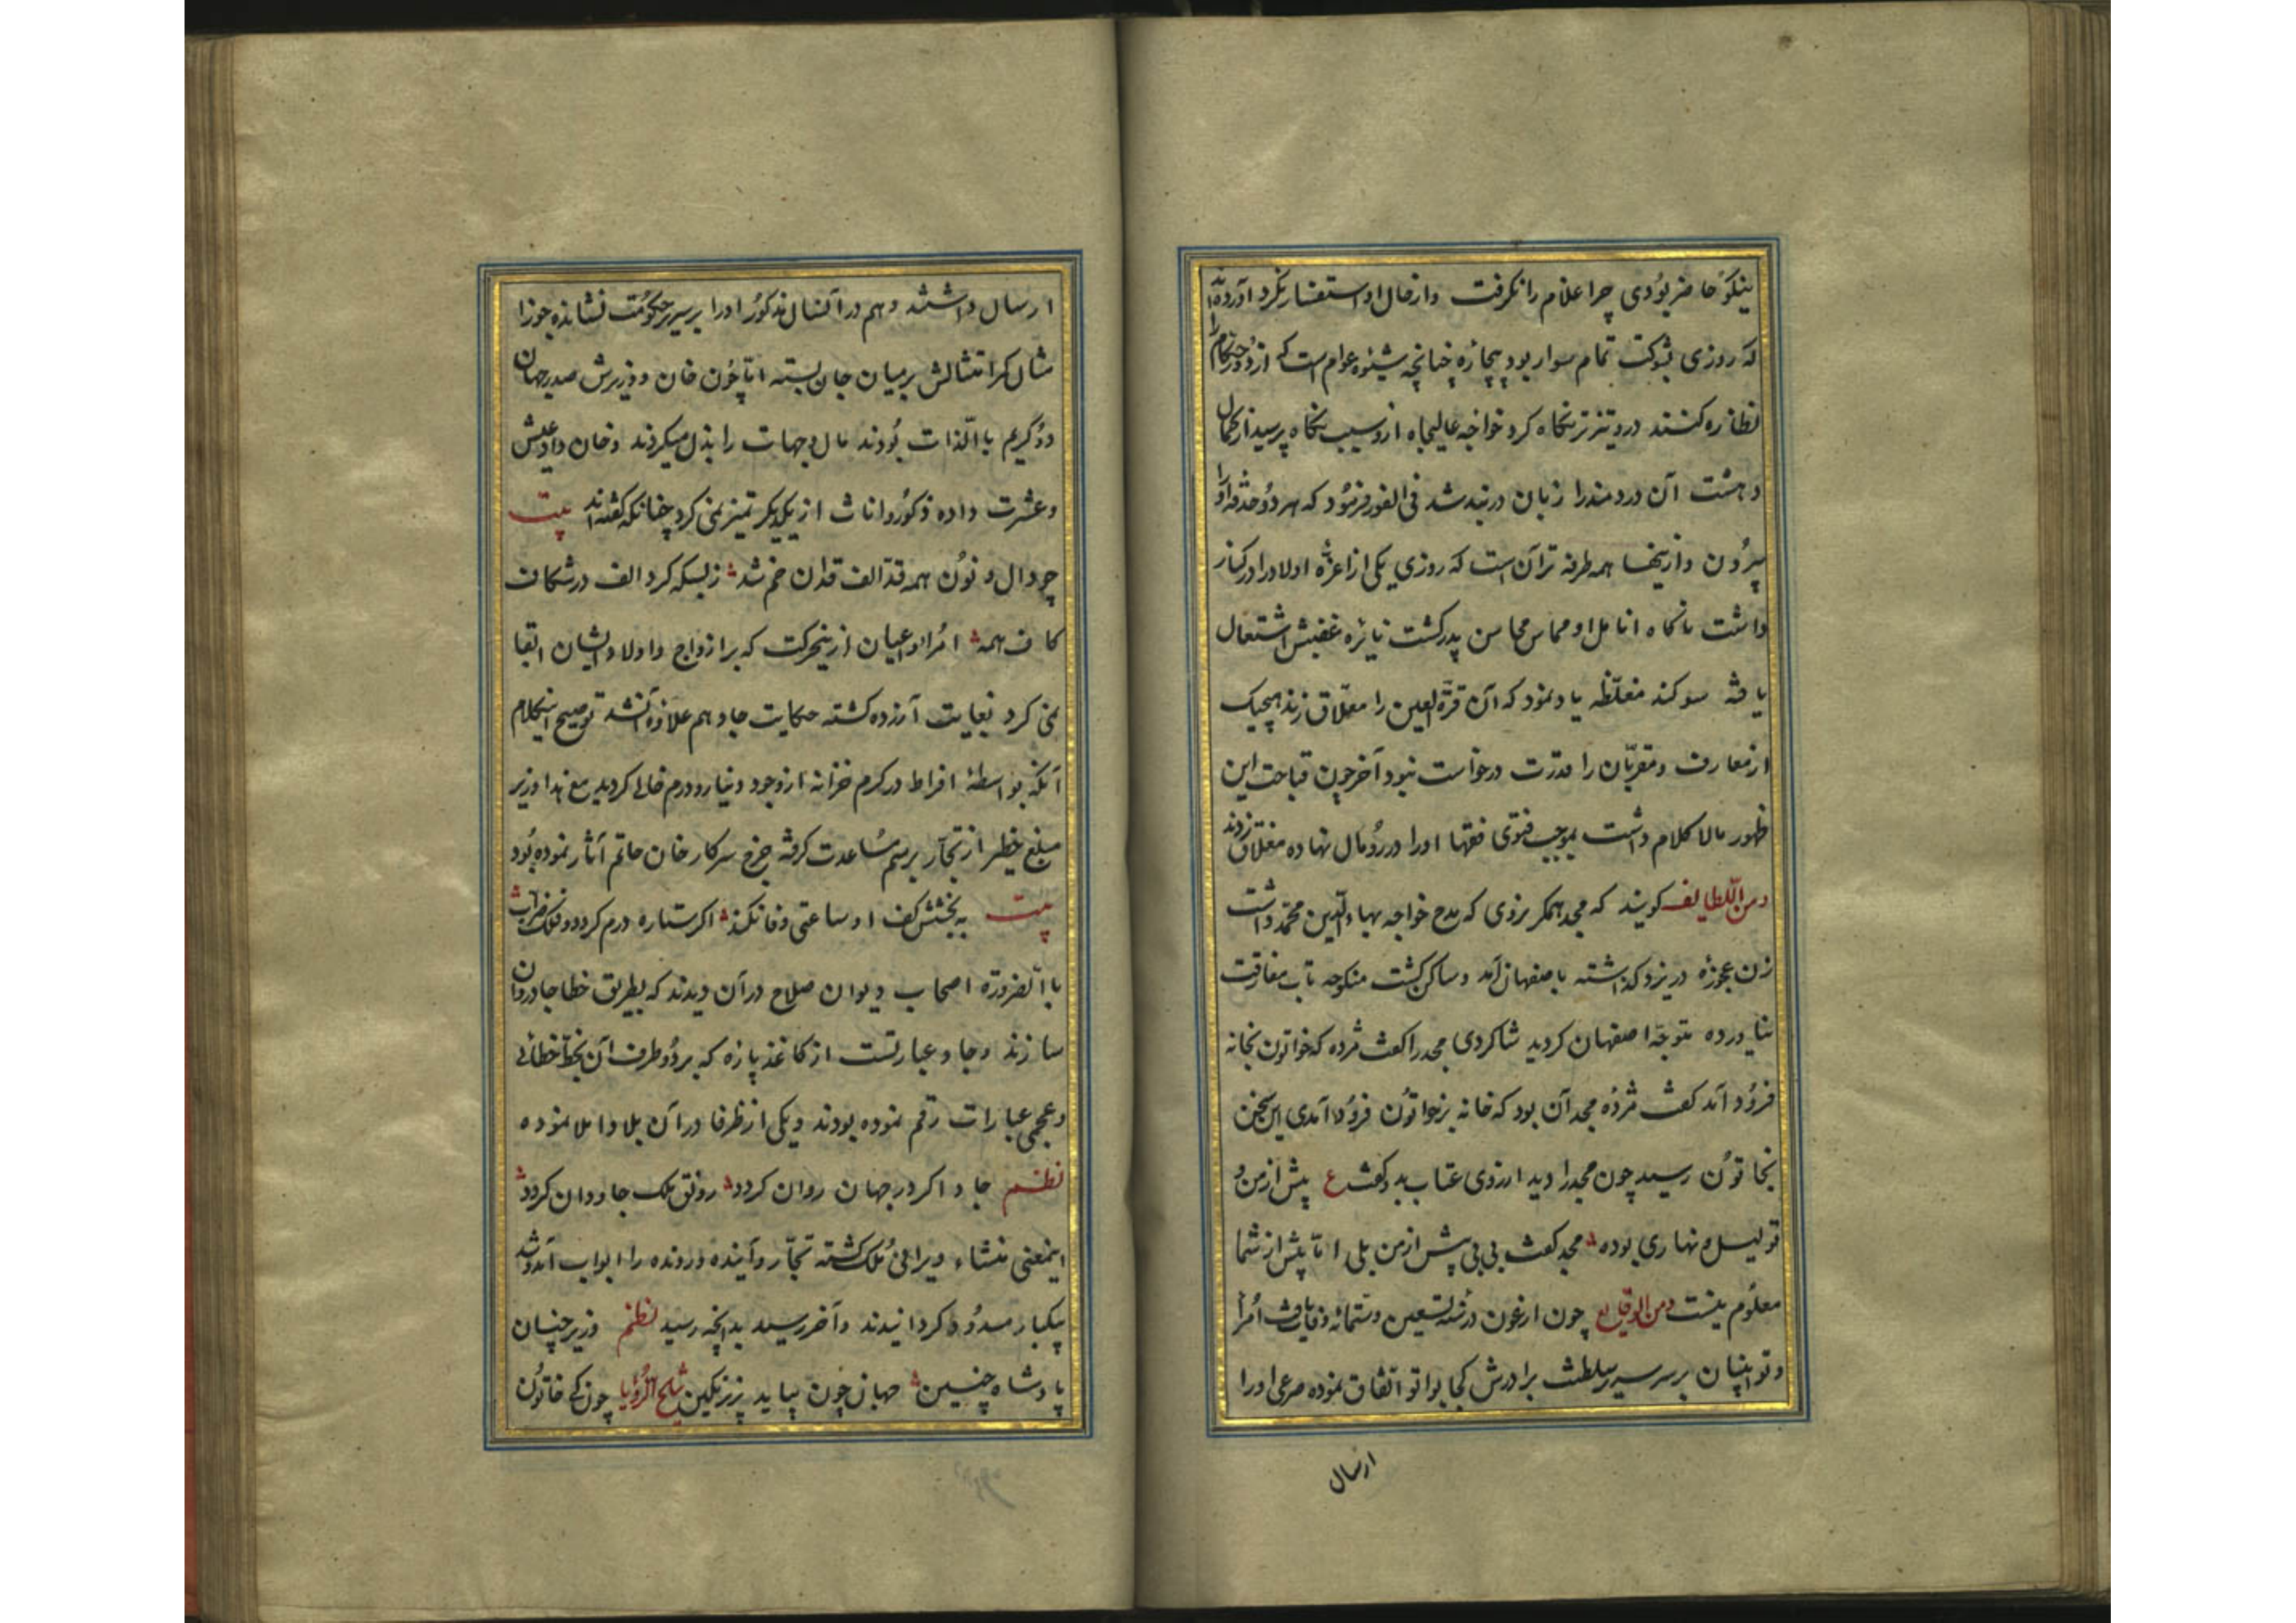 نیکو حاضر بودی چرا اعلام را نگرفت و از حال او استفسار نکرد آورده‌اند
که روزی بشوکت تمام سوار بود بیچاره چنانچه شیوه عوام است که از دور حکام را
نظاره کنند درو تیزتر نگاه کرد خواجه عالیجاه ازو سبب نگاه پرسید از کمال
دهشت آن دردمند را زبان در بند شد فی الفور فرمود که هر دو حدقه او را
بیرون و ازینها همه طرفه تر آن است که روزی یکی از اعزه اولاد را در کنار
داشت ناگاه انامل او مماس محاسن پدر گشت نایره غضبش اشتعال
یافته سوگند مغلظه یاد نمود که آن قرة العین را معلاق زند هیچیک
از معارف و مقربان را قدرت درخواست نبود آخر چون قباحت این
ظهور مالاکلام داشت بموجب فتوی فقها او را در رومال نهاده معلاق زدند
ومن اللطایف گویند که مجد همگر یزدی که مدح خواجه بهاءالدین محمد داشت
زن عجوزه در یزد گذاشته باصفهان آمد و ساکن گشت منکوحه تاب مفارقت
نیاورده متوجه اصفهان گردید شاگردی مجد را گفت مژده که خواتون بخانه
فرود آمد گفت مژده مجد آن بود که خانه بر خواتون فرود آمدی این سخن
بخاتون رسید چون مجد را دید از روی عتاب بدو گفت ع پیش از من و
تو لیل و نهاری بوده مجد گفت بی بی پیش از من بلی اما پیش از شما
معلوم نیست ومن الوقایع چون ارغون در سنه تسعین و ستمائه وفات یافت امرا
و نوابینان بر سریر سلطنت برادرش کجابو اتفاق نموده مرعی او را
ارسال
ارسال داشتند و هم در آنسال مذکور او را بر سریر حکومت نشانده جوزا
مثال کمر امتثالش بر میان جان بسته اما چون خان و وزیرش صدر جهان
دو کریم بالذات بودند مال و جهات را بذل میکردند و خان داد عیش
و عشرت داده ذکور و اناث از یکدیگر تمیز نمی کرد چنانکه گفته‌اند بیت
چو دال و نون همه قد الف قدان خم شد ز بسکه کرد الف در شکاف
کاف همه امرا و اعیان ازینحرکت که بر ازواج و اولاد ایشان ابقا
نمی کرد بغایت آزرده گشته حکایت جاو هم علاوه آن شد توضیح اینکلام
آنکه بواسطه افراط در کرم خزانه از وجود دینار و درم خالی گردید مع هذا وزیر
مبلغ خطیر از تجار برسم مساعدت گرفته خرج سرکار خان حاتم آثار نموده بود
بیت به بخشش کف او ساعتی وفا نکند اگر ستاره درم گردد و فلک ضراب
باالضرورة اصحاب دیوان صلاح در آن دیدند که بطریق خطا جاو روان
سازند و جاو عبارتست از کاغذ پاره که بر دو طرف آن بخط خطائی
و عجمی عبارات رقم نموده بودند و یکی از ظرفا در آن بلاد املا نموده
نظم جاو اگر در جهان روان گردد رونق ملک جاودان گردد
اینمعنی منشاء ویرانی ملک گشته تجار و آینده و رونده را ابواب آمد و شد
بیکبار مسدود گردانیدند و آخر رسید بدانچه رسید نظم وزیر چنان
پادشاه چنین جهان چون بیاید بزیر نگین ملح الرؤیا چون کی خاتون